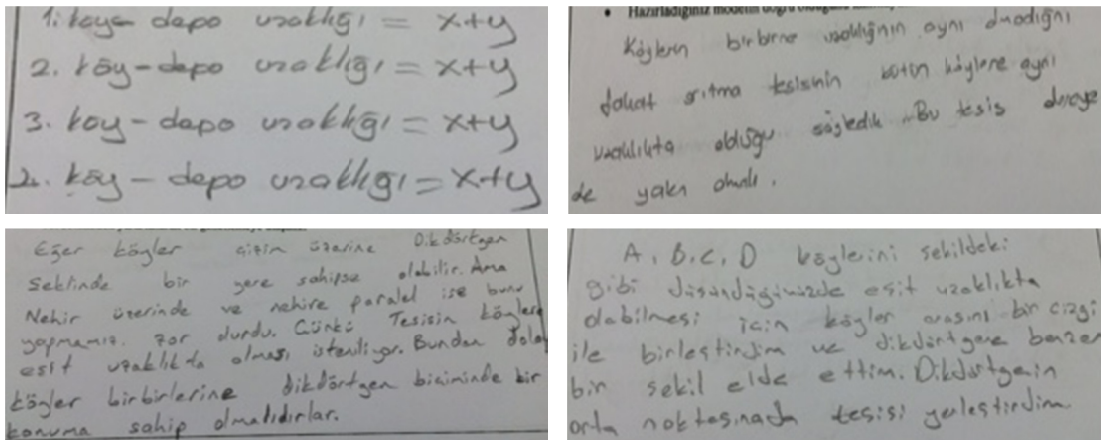 1. köye depo uzaklığı = x+y
2. köy-depo uzaklığı = x+y
3. köy-depo uzaklığı = x+y
2. köy-depo uzaklığı = x+y
• Hazırladığınız modelin doğru
Köylerin birbirine uzaklığının aynı olmadığını
fakat arıtma tesisinin bütün köylere aynı
uzaklıkta olduğu söyledik. Bu tesis dereye
de yakın olmalı.
Eğer köyler çizim üzerine Dikdörtgen
Şeklinde bir yere sahipse olabilir. Ama
Nehir üzerinde ve nehire paralel ise bunu
yapmamız zor durdu. Çünkü Tesisin köylere
eşit uzaklıkta olması isteniliyor. Bundan dolayı
köyler birbirlerine dikdörtgen biçiminde bir
konuma sahip olmalıdırlar.
A, B, C, D köylerini şekildeki
gibi düşündüğümüzde eşit uzaklıkta
olabilmesi için köyler arasını bir çizgi
ile birleştirdim ve dikdörtgene benzer
bir şekil elde ettim. Dikdörtgenin
orta noktasınada tesisi yerleştirdim